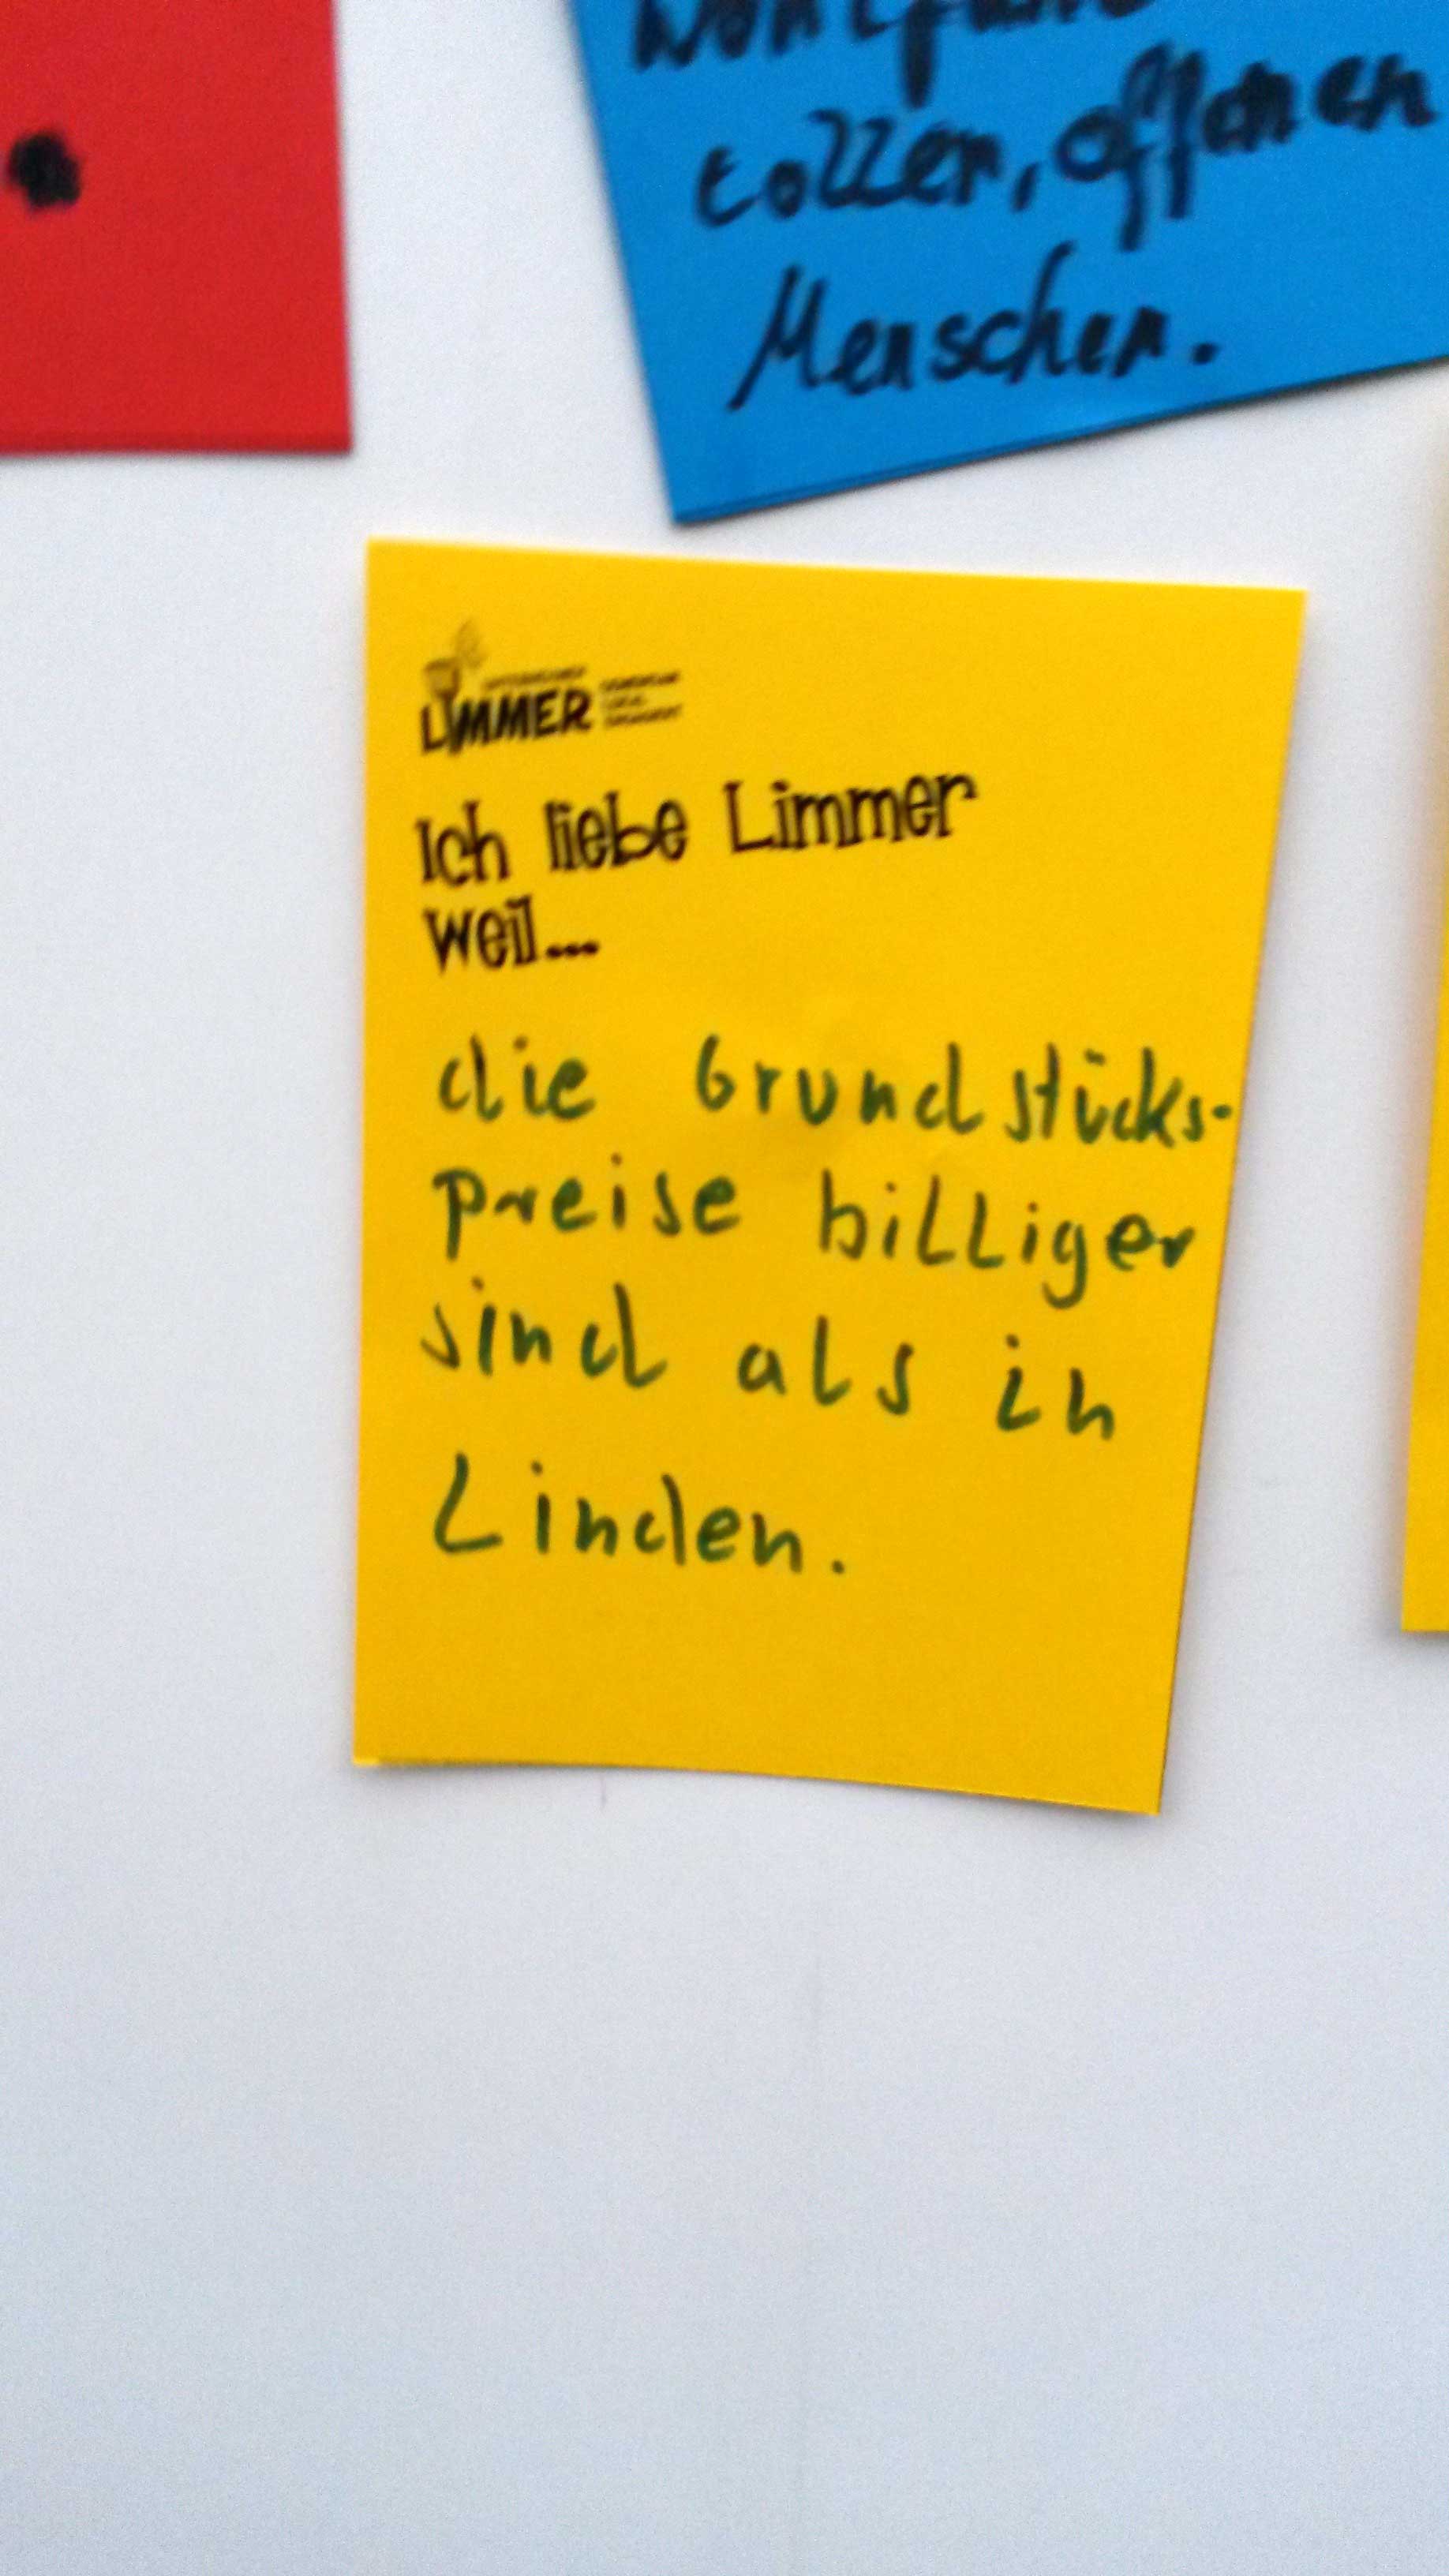 tollen, offenen
Menschen.
LIMMER
Ich liebe Limmer
weil...
die Grundstücks-
preise billiger
sind als in
Linden.